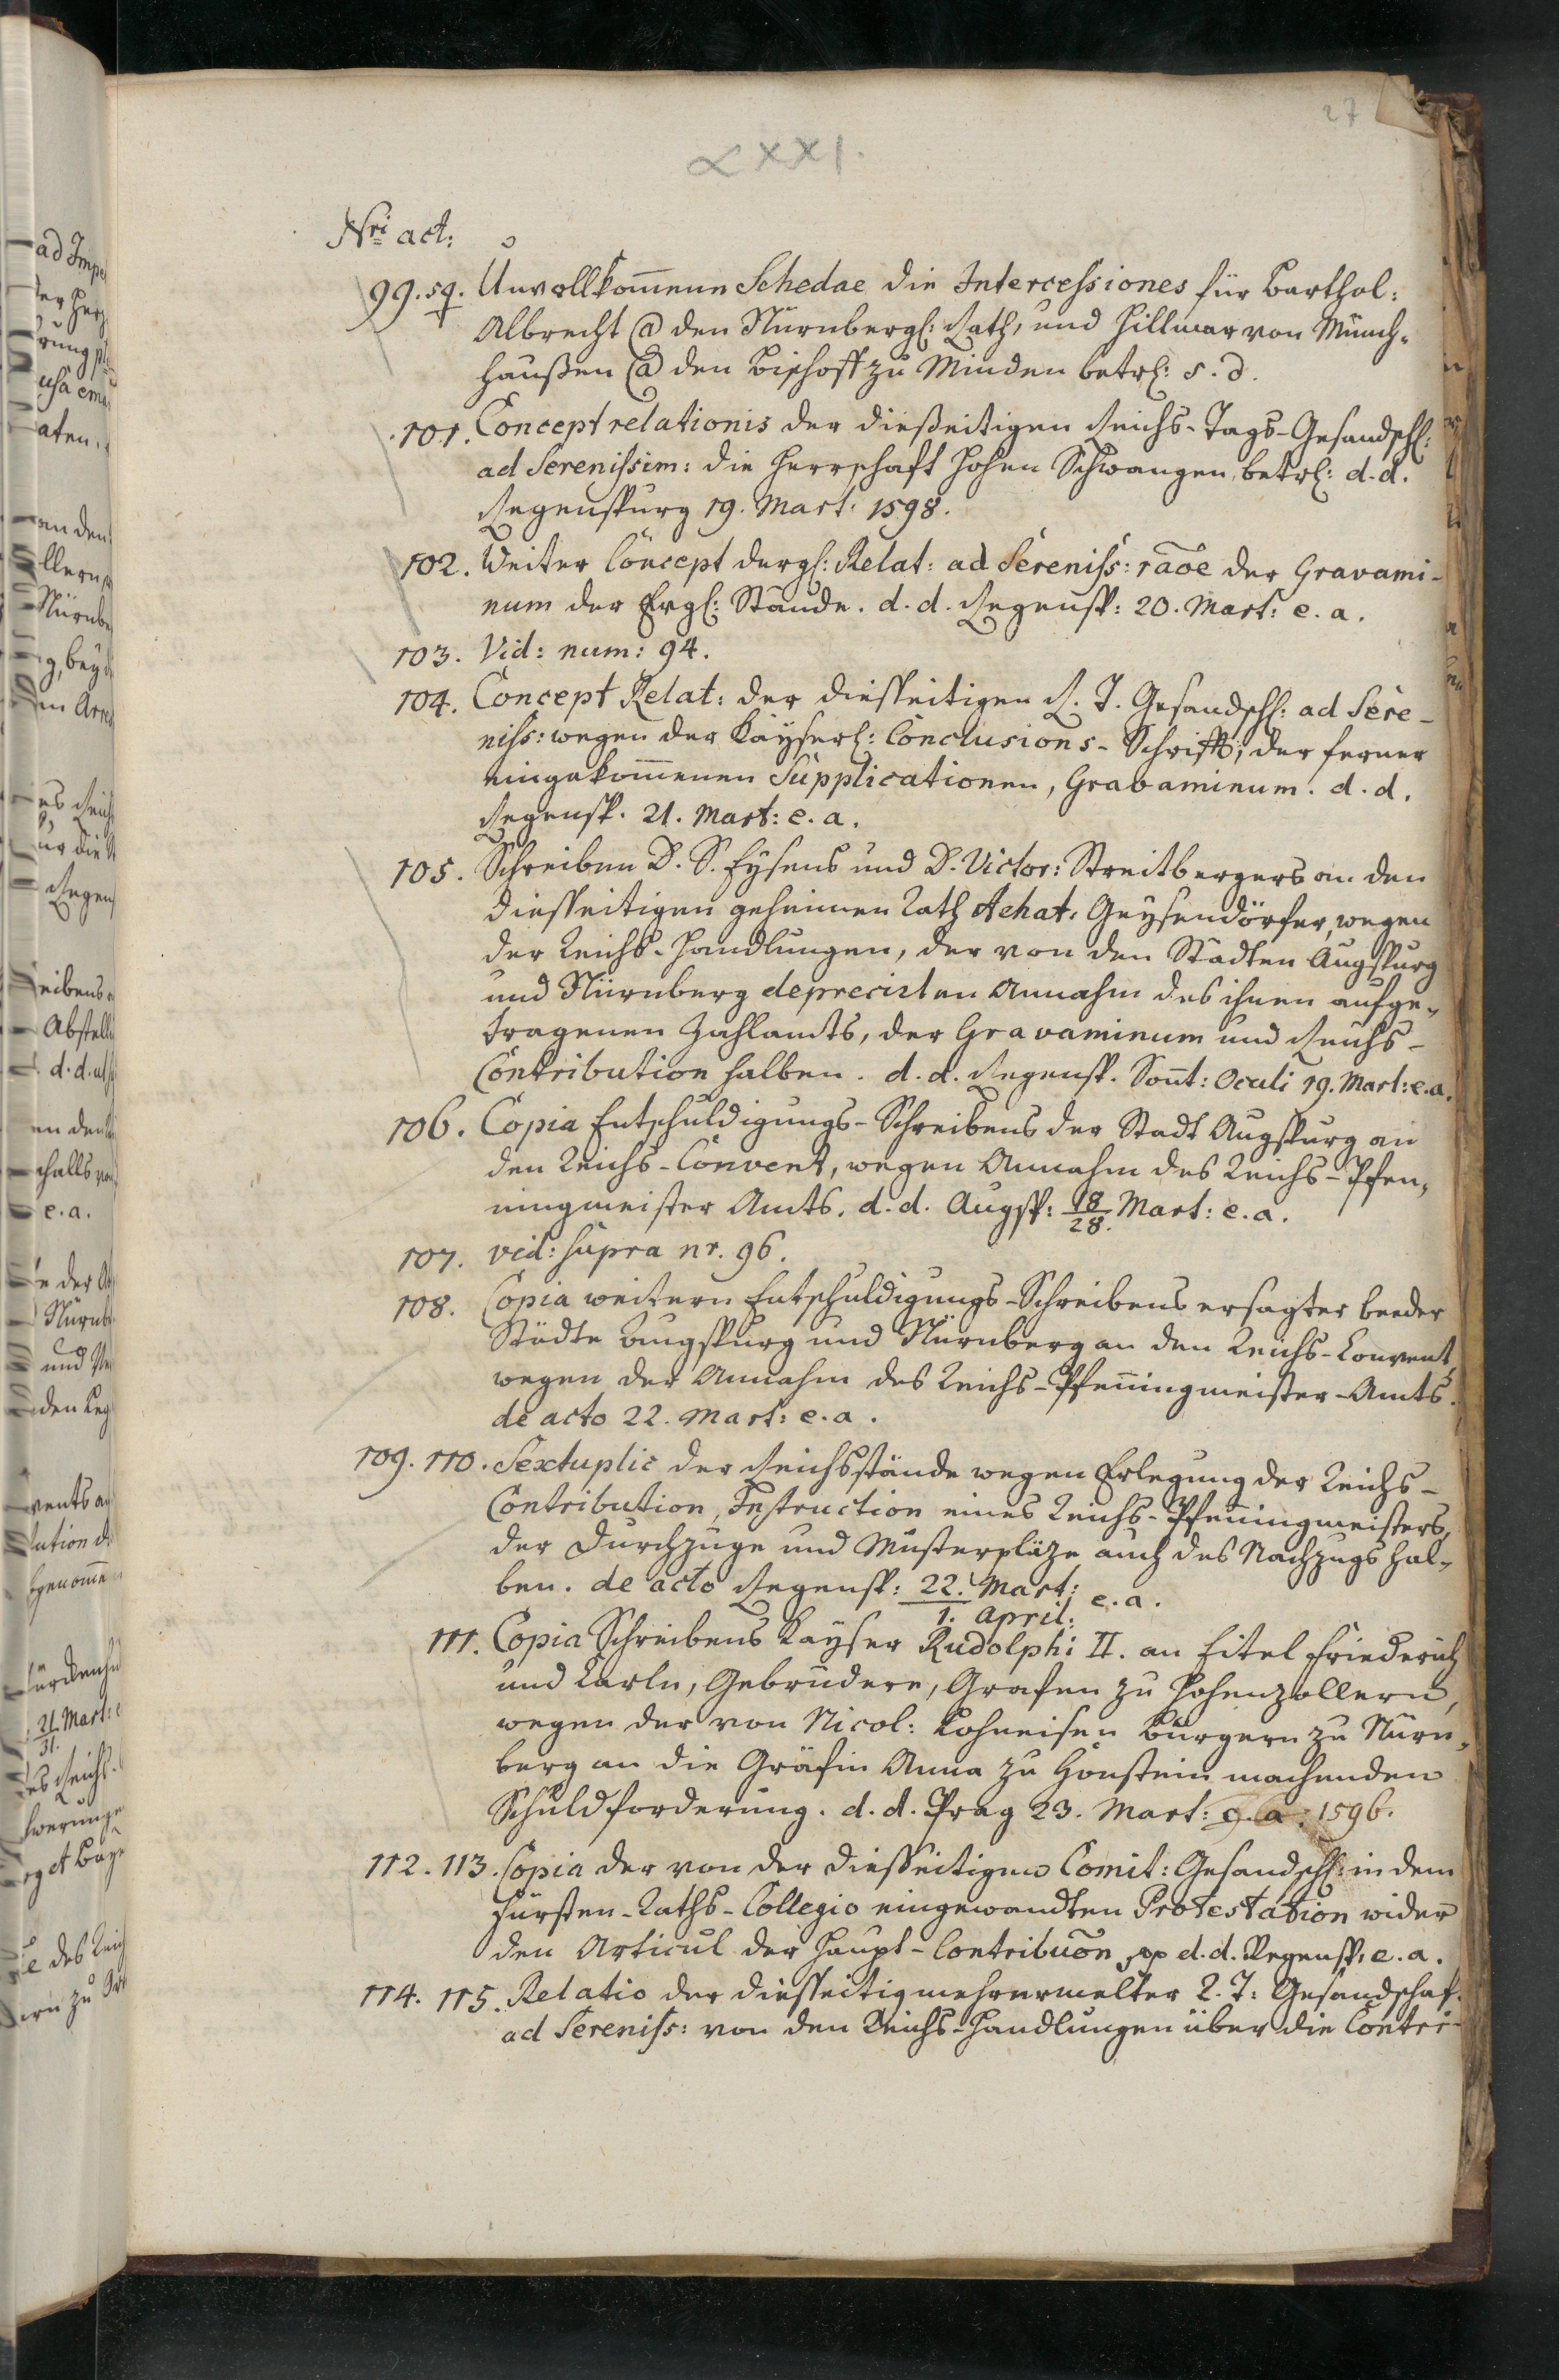 27
LXXI.
Nri act:
99. sq. Unvollkom̅ene Schedae die Intercessiones für Barthol:
Albrecht @ den Nürnbergl: Rath, und Hillmar von Münch-
haußen @ den Bischoff zu Minden betrl: s. d.
101. Concept relationis der dießeitigen Reichs-Tags-Gesandschl:
ad Serenissim: die Herrschaft Hohen Schwangen, betrl: d. d.
Regenspurg 19. Mart. 1598.
102. Weiter Concept dergl: Relat: ad Sereniss: raõe der Gravami-
num der Ergl: Stände. d. d. Regensp: 20. Mart: e. a.
103. Vid: num: 94.
104. Concept Relat: der diesseitigen R. T. Gesandschl: ad Sere-
niss: wegen der Kayserl: Conclusions-Schrifft, der ferner
eingekom̅enen Supplicationen, Gravaminum. d. d.
Regensp. 21. Mart: e. a.
105. Schreiben D. S. Eysens und D. Victor: Streitbergers an den
diesseitigen geheimen Rath Achat: Geysendörfer, wegen
der Reichs-Handlungen, der von den Städten Augspurg
und Nürnberg deprecirten Annahm des ihnen aufge-
tragenen Zahlamts, der Gravaminum und Reichs-
Contribution halben. d. d. Regensp. Son̅t: Oculi 19. Mart: e. a.
106. Copia Entschuldigungs-Schreibens der Stadt Augspurg an
den Reichs-Convent, wegen Annahm des Reichs-Pfen-
ningmeister Amts. d. d. Augsp: 18/28. Mart: e. a.
107. vid: supra nr. 96.
108. Copia weitern Entschuldigungs-Schreibens ersagter beeder
Städte Augspurg und Nürnberg an den Reichs-Convent,
wegen der Annahm des Reichs-Pfen̅ingmeister-Amts.
de acto 22. Mart: e. a.
109. 110. Sextuplic der Reichsstände wegen Erlegung der Reichs-
Contribution, Instruction eines Reichs-Pfen̅ingmeisters,
der Durchzüge und Musterpläze auch des Nachzugs hal-
ben. de acto Regensp: 22. Mart:/1. April: e. a.
111. Copia Schreibens Kayser Rudolphi II. an Eitel Friederich
und Carln, Gebrüdere, Grafen zu Hohenzollern,
wegen der von Nicol: Kohneisen Burgern zu Nürn-
berg an die Gräfin Anna zu Honstein machenden
Schuldforderung. d. d. Prag 23. Mart: e. a. 1596.
112. 113. Copia der von der diesseitigen Comit: Gesandschl: in dem
Fürsten-Raths-Collegio eingewandten Protestation wider
den Articul der Haupt-Contribuõn pp d. d. Regensp. e. a.
114. 115. Relatio der diesseitig mehrermelter R. T: Gesandschaf.
ad Sereniss: von den Reichs-Handlungen über die Contri-